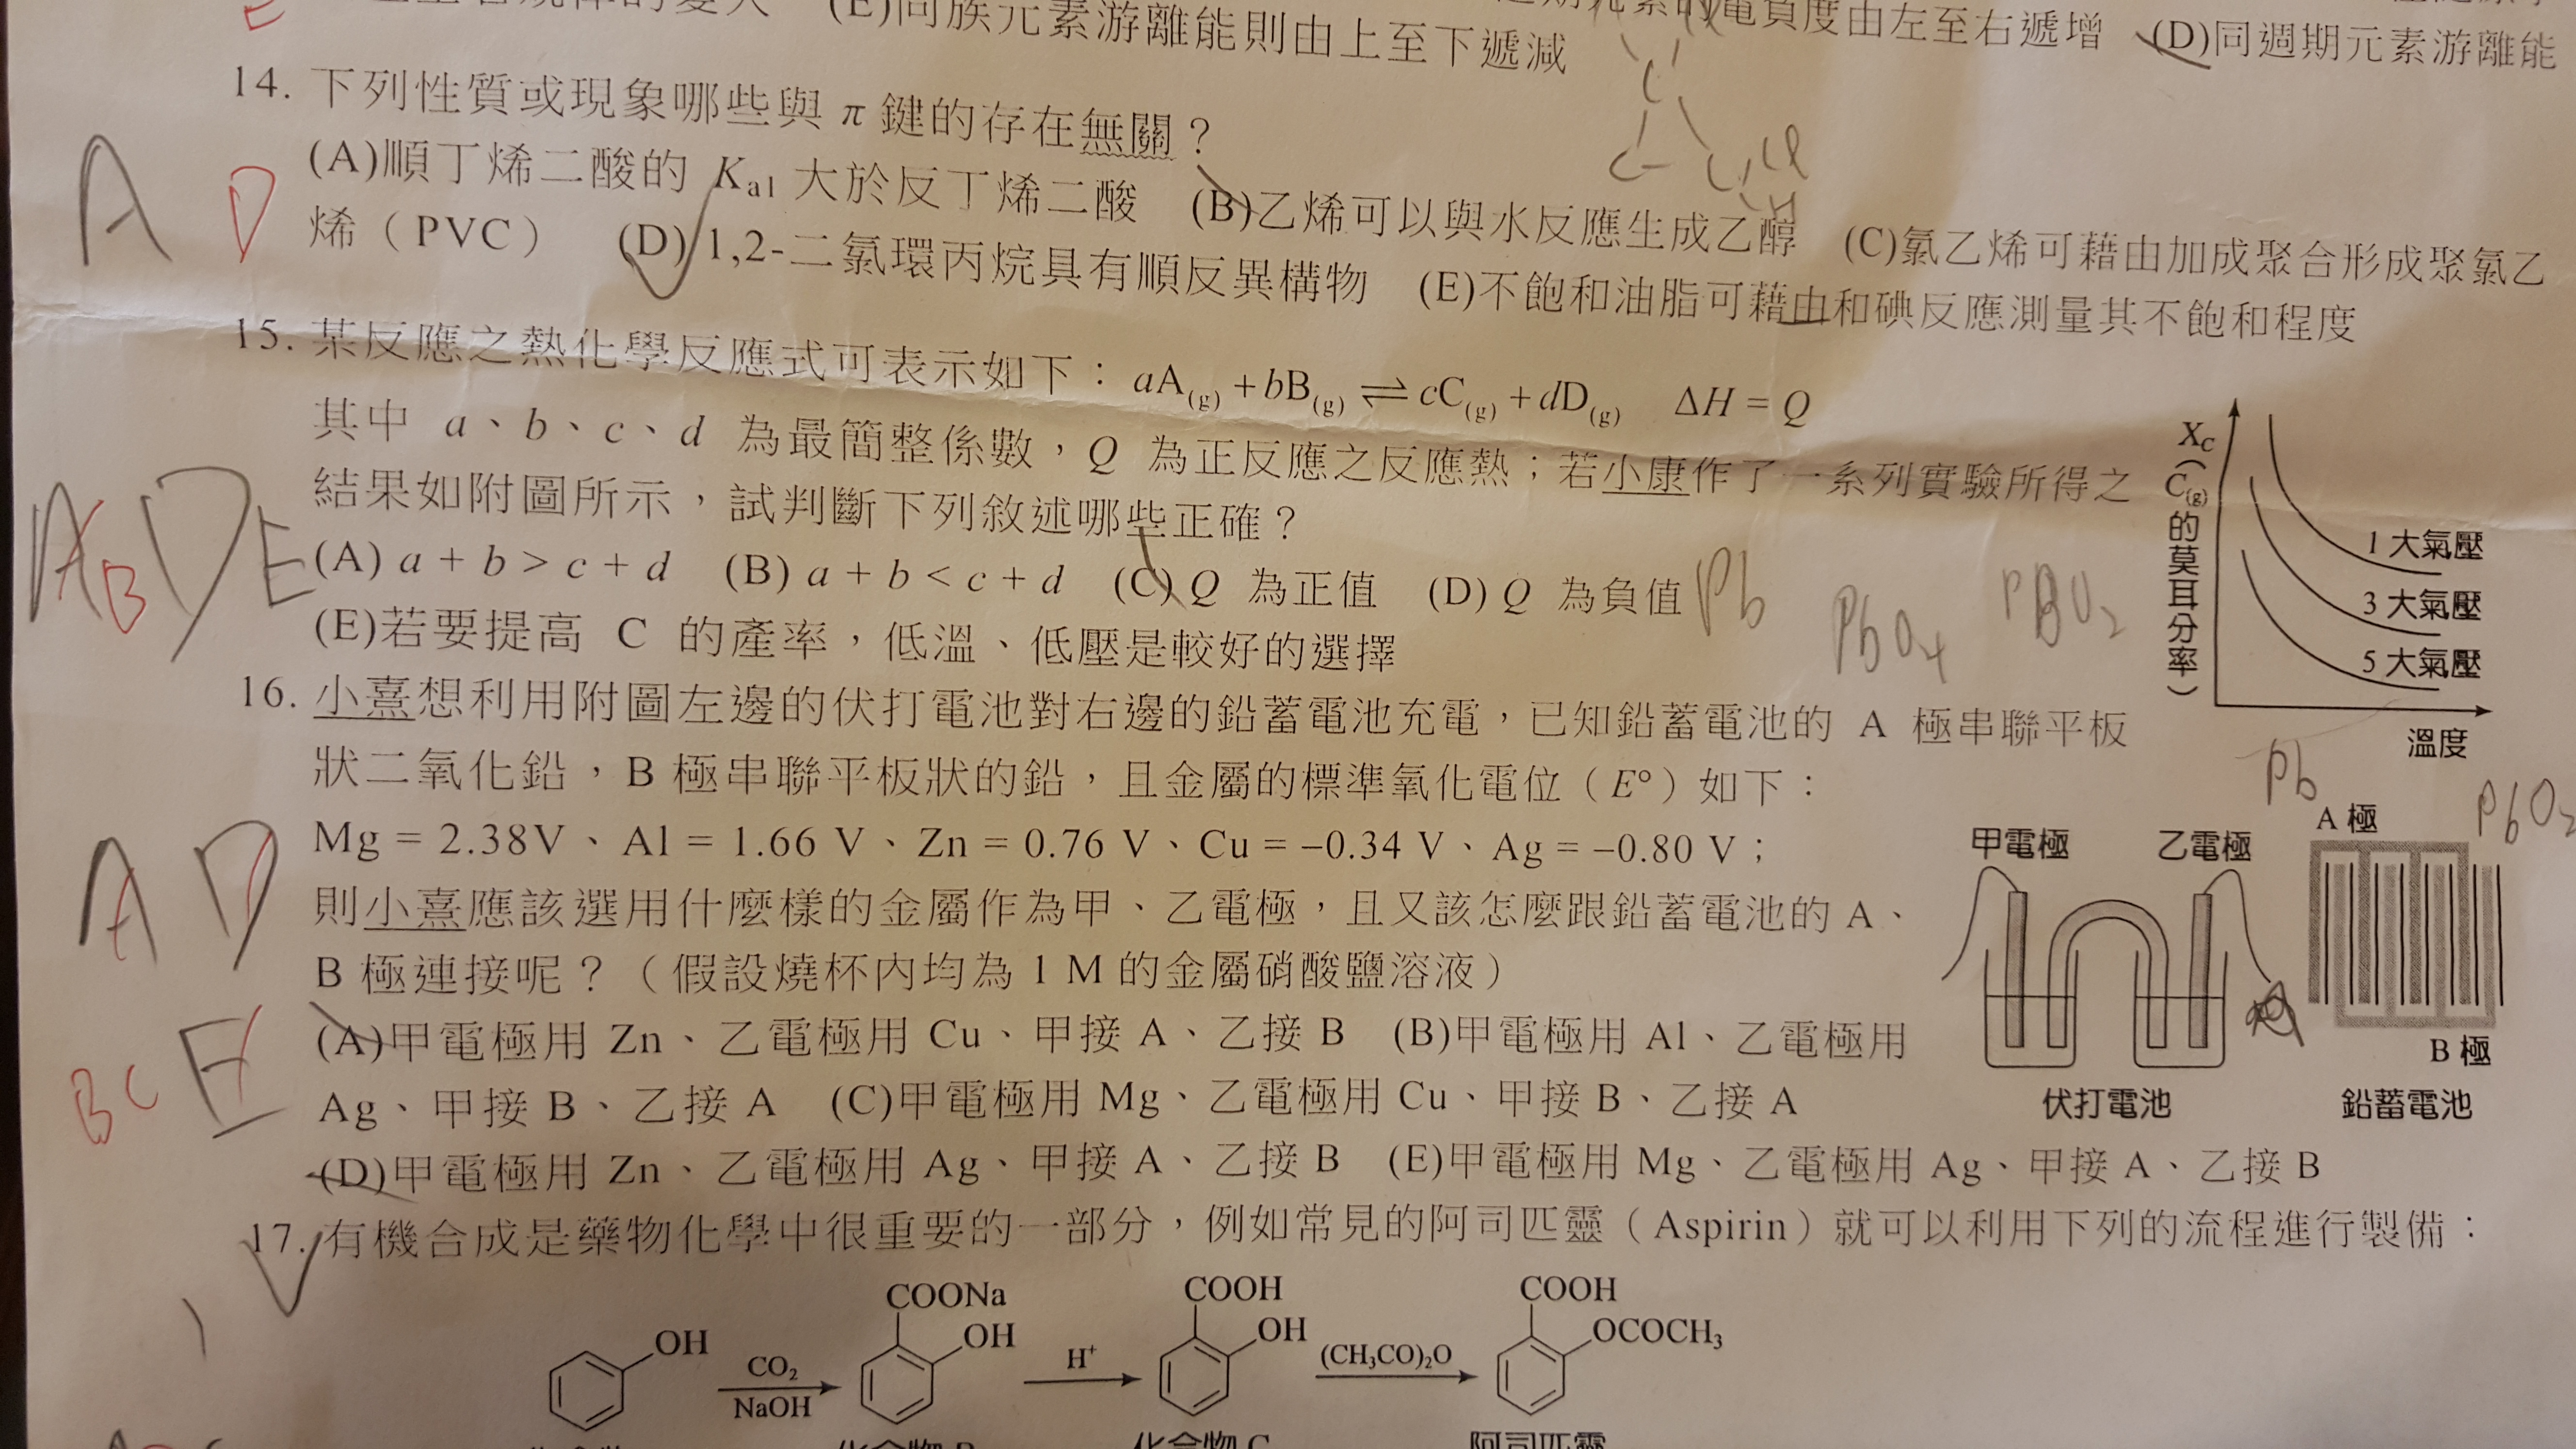 (E)同族元素游離能則由上至下遞減
電負度由左至右遞增 (D)同週期元素游離能
14. 下列性質或現象哪些與 π 鍵的存在無關？
(A)順丁烯二酸的 Ka1 大於反丁烯二酸 (B)乙烯可以與水反應生成乙醇 (C)氯乙烯可藉由加成聚合形成聚氯乙
烯（PVC） (D) 1,2-二氯環丙烷具有順反異構物 (E)不飽和油脂可藉由和碘反應測量其不飽和程度
A D
15. 某反應之熱化學反應式可表示如下：aA(g) + bB(g) ⇌ cC(g) + dD(g) ΔH = Q
其中 a、b、c、d 為最簡整係數，Q 為正反應之反應熱；若小康作了一系列實驗所得之
結果如附圖所示，試判斷下列敘述哪些正確？
(A) a + b > c + d (B) a + b < c + d (C) Q 為正值 (D) Q 為負值
(E)若要提高 C 的產率，低溫、低壓是較好的選擇
A B D E
Pb PbO4 PBO2
XC
（C(g)的莫耳分率）
1 大氣壓
3 大氣壓
5 大氣壓
溫度
16. 小熹想利用附圖左邊的伏打電池對右邊的鉛蓄電池充電，已知鉛蓄電池的 A 極串聯平板
狀二氧化鉛，B 極串聯平板狀的鉛，且金屬的標準氧化電位（E°）如下：
Mg = 2.38V、Al = 1.66 V、Zn = 0.76 V、Cu = –0.34 V、Ag = –0.80 V；
則小熹應該選用什麼樣的金屬作為甲、乙電極，且又該怎麼跟鉛蓄電池的 A、
B 極連接呢？（假設燒杯內均為 1 M 的金屬硝酸鹽溶液）
(A)甲電極用 Zn、乙電極用 Cu、甲接 A、乙接 B (B)甲電極用 Al、乙電極用
Ag、甲接 B、乙接 A (C)甲電極用 Mg、乙電極用 Cu、甲接 B、乙接 A
(D)甲電極用 Zn、乙電極用 Ag、甲接 A、乙接 B (E)甲電極用 Mg、乙電極用 Ag、甲接 A、乙接 B
A D
BC E
Pb
PbO2
A 極
甲電極 乙電極
B 極
伏打電池 鉛蓄電池
17. 有機合成是藥物化學中很重要的一部分，例如常見的阿司匹靈（Aspirin）就可以利用下列的流程進行製備：
COONa COOH COOH
OH OH OH OCOCH3
CO2 H+ (CH3CO)2O
NaOH